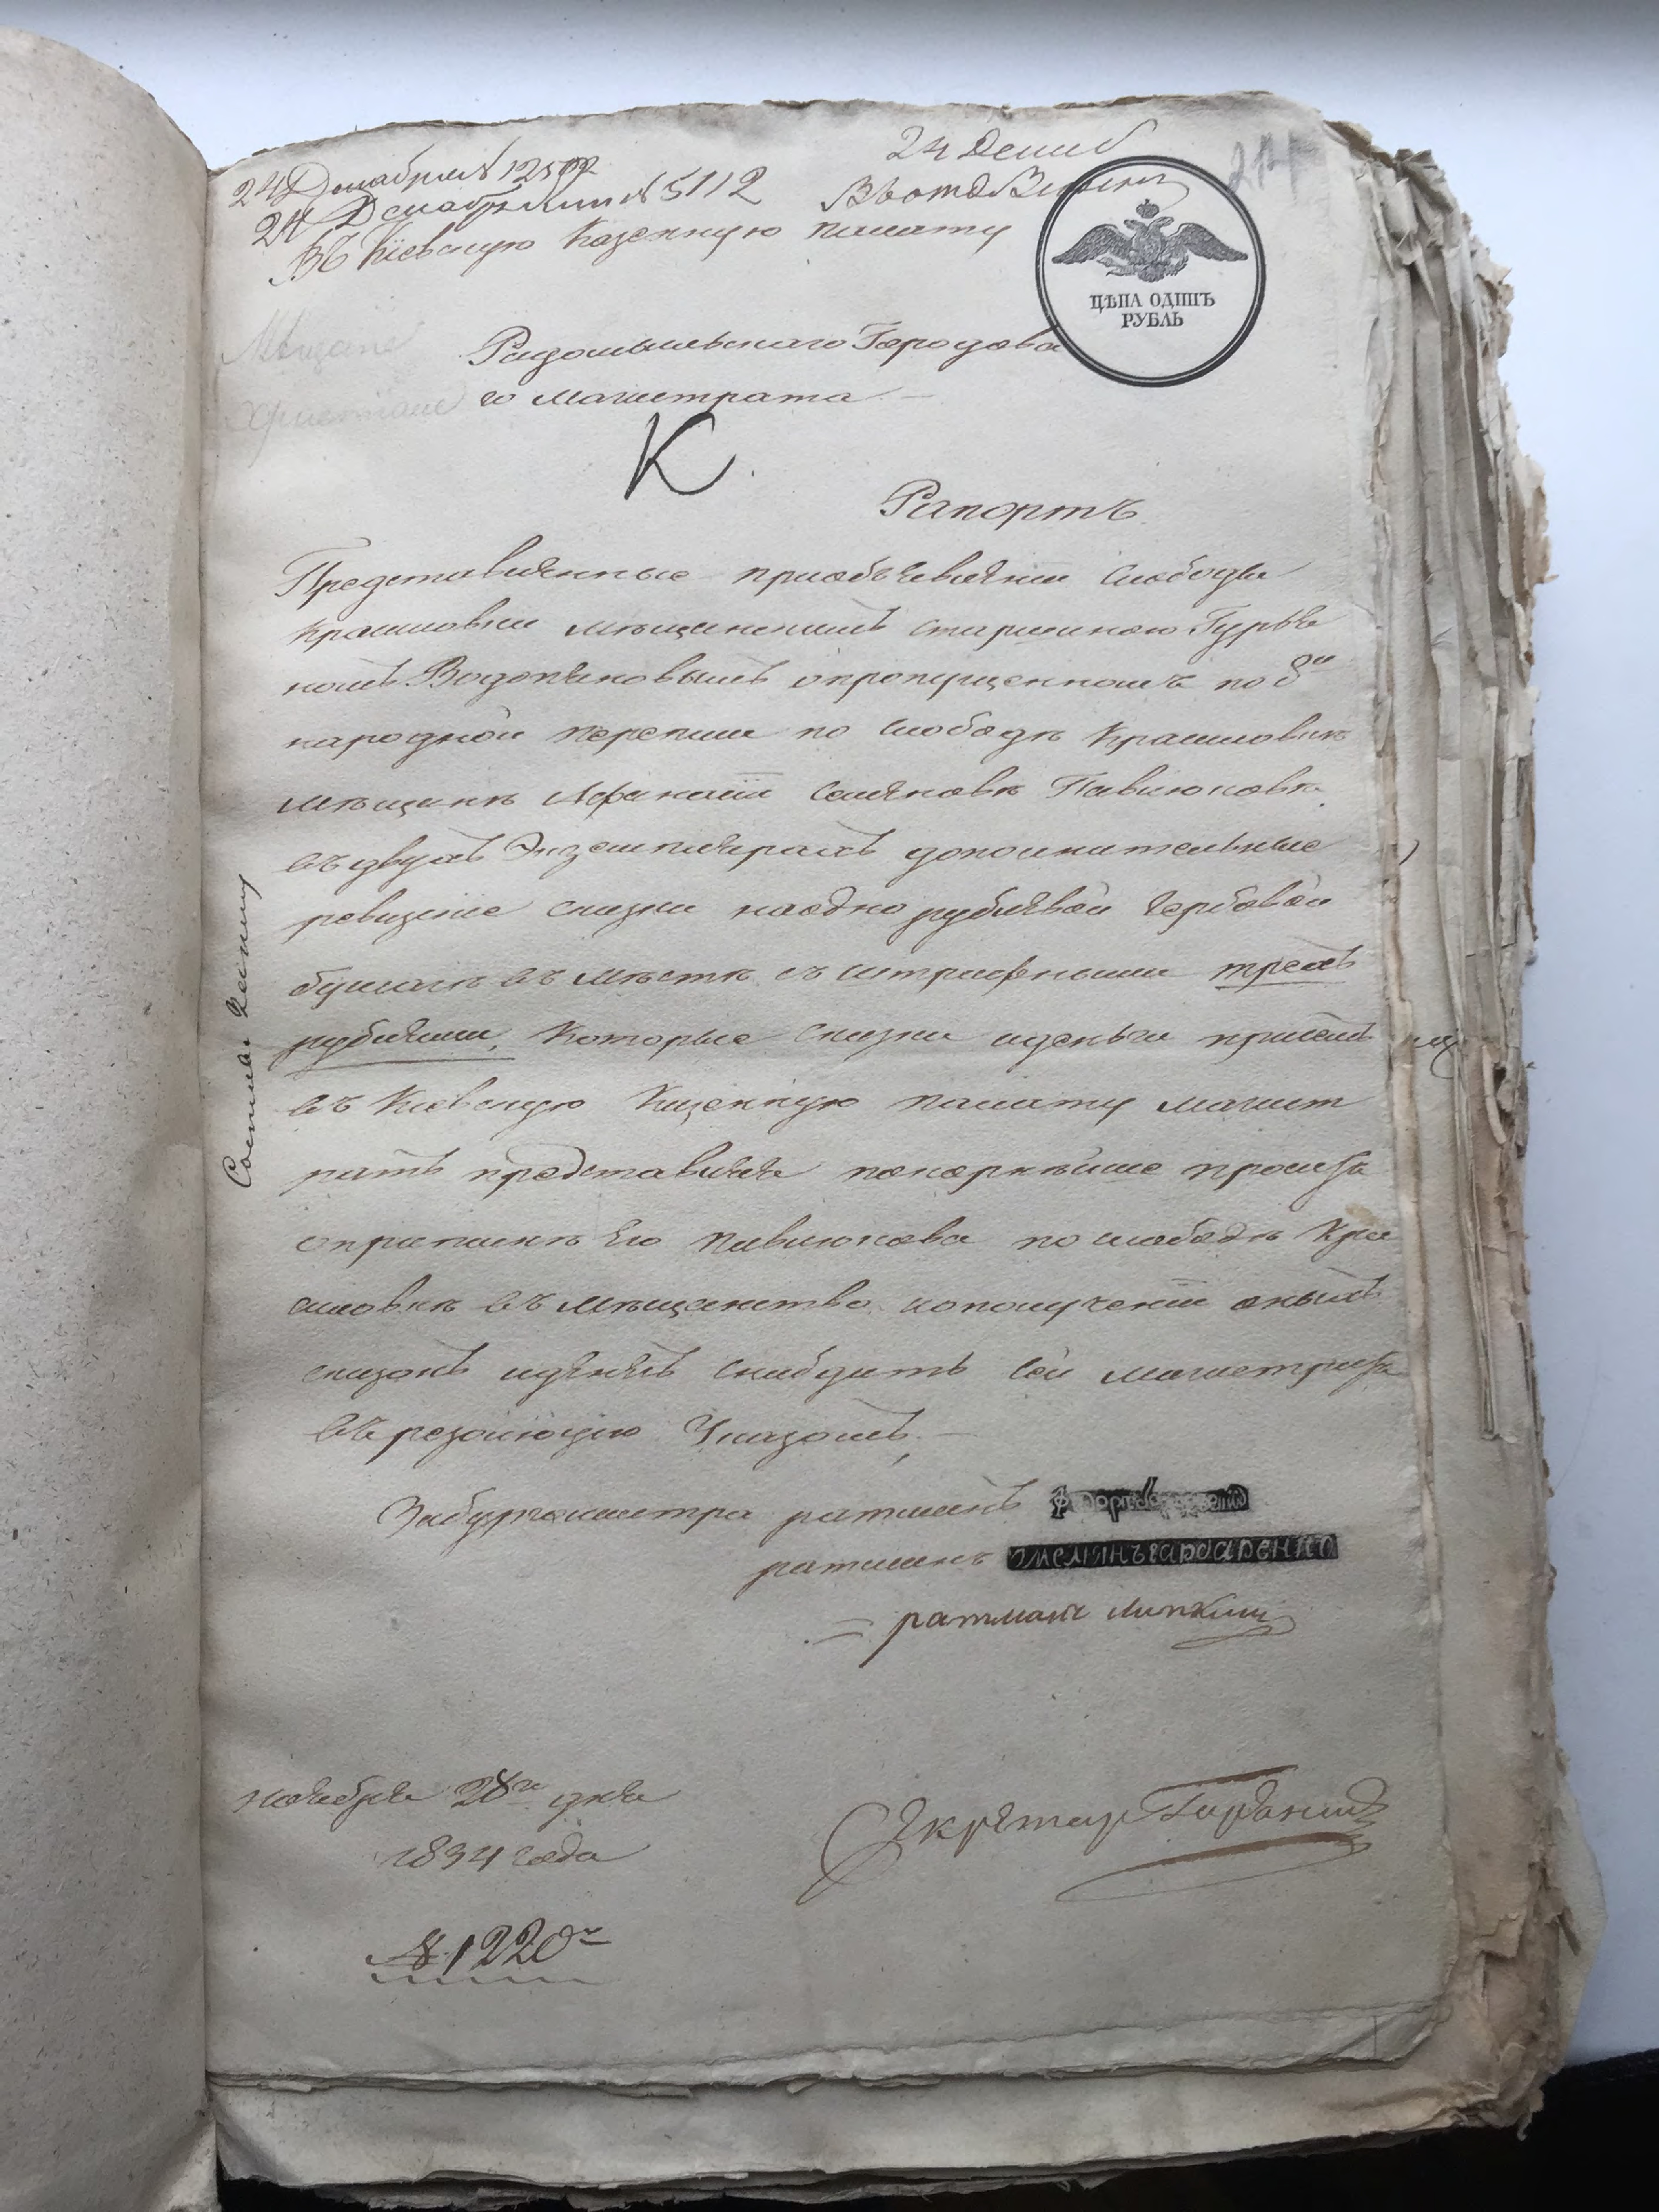 24 Декабря № 12592
24 Декабря № 5112
24 Декаб
Въ Кіевскую Казенную палату
ЦѢНА ОДИНЪ
РУБЛЬ
Мѣщане
Христіане
Радомысльскаго Городова
го Магистрата
К.
Рапортъ
Представленные приобъявленіи слободы
Крашовки мѣщанскимъ старшиною Гурье
номъ Водопяновымъ опропущенномъ по 8й
народной переписи по слободѣ Крашовкѣ
мѣщанѣ Афанасіи Семеновѣ Павлюковѣ
въ двухъ Экземплярахъ дополнительные
ревизкіе сказки на одно рублевой гербовой
бумагѣ въ мѣстѣ съ штрафными тремъ
рублями, которые сказки иденьги при семъ
въ Кіевскую Казенную палату магист
ратъ представляя покорнѣйше проситъ
оприпискѣ Его Павлюкова по слободѣ Кра
шовкѣ въ мѣщанство, иополученіи оныхъ
сказокъ иденегъ снабдить сей магистратъ
въ резолюцію Указомъ,
Забургомистра ратманъ
ратманъ Омелянъ Гарбаренко
ратманъ Липкин
Секретар
ноября 28го дня
1834 года
№ 1220й